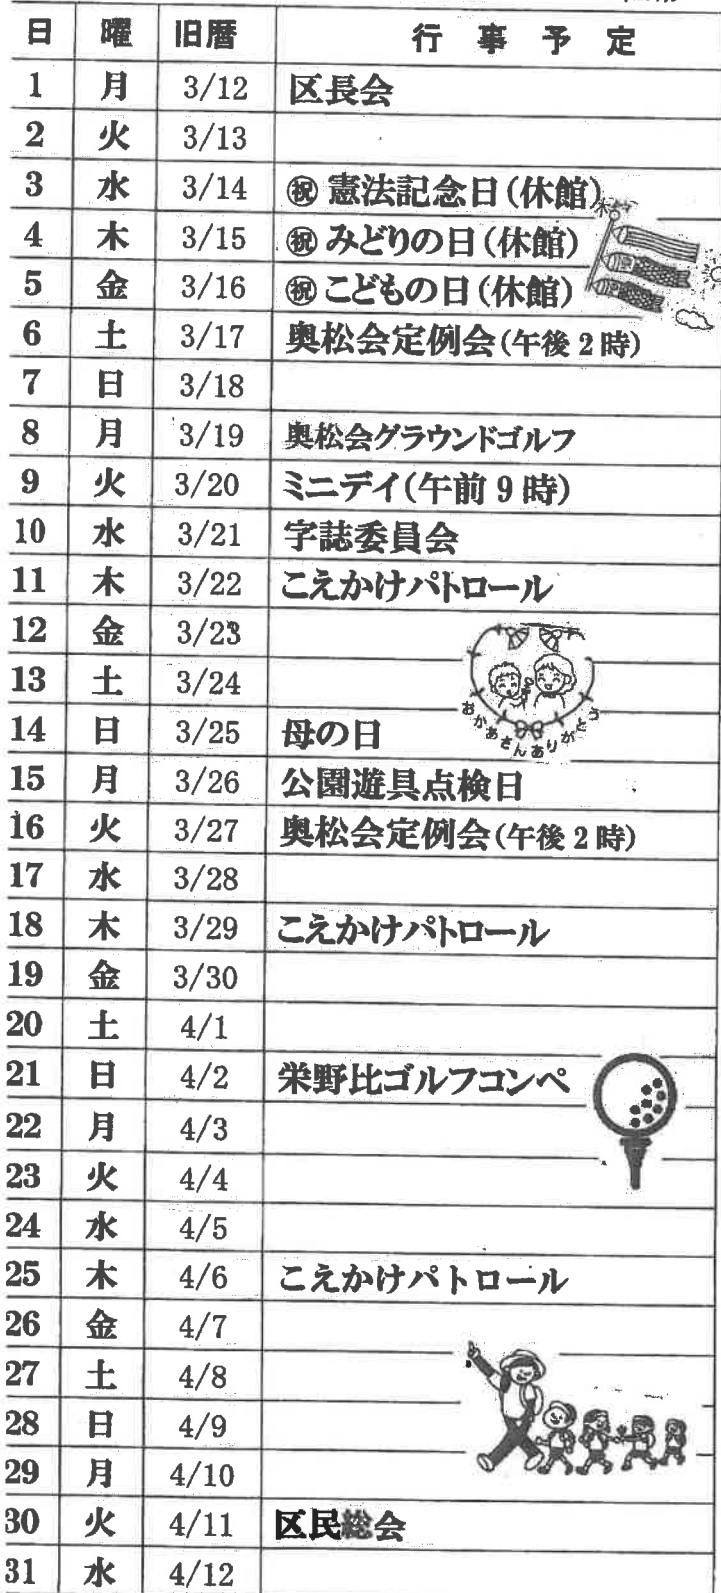 日 曜 旧暦 行事予定
1 月 3/12 区長会
2 火 3/13
3 水 3/14 ㊗憲法記念日(休館)
4 木 3/15 ㊗みどりの日(休館)
5 金 3/16 ㊗こどもの日(休館)
6 土 3/17 奥松会定例会(午後2時)
7 日 3/18
8 月 3/19 奥松会グラウンドゴルフ
9 火 3/20 ミニデイ(午前9時)
10 水 3/21 字誌委員会
11 木 3/22 こえかけパトロール
12 金 3/23
13 土 3/24
14 日 3/25 母の日
おかあさんありがとう
15 月 3/26 公園遊具点検日
16 火 3/27 奥松会定例会(午後2時)
17 水 3/28
18 木 3/29 こえかけパトロール
19 金 3/30
20 土 4/1
21 日 4/2 栄野比ゴルフコンペ
22 月 4/3
23 火 4/4
24 水 4/5
25 木 4/6 こえかけパトロール
26 金 4/7
27 土 4/8
28 日 4/9
29 月 4/10
30 火 4/11 区民総会
31 水 4/12